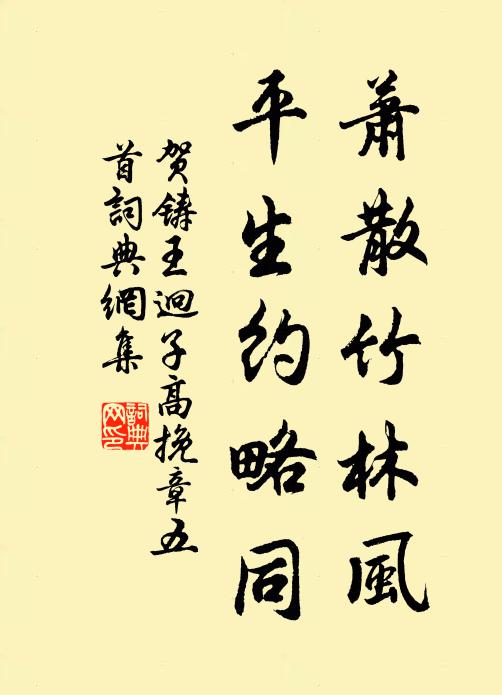 蕭散竹林風
平生約略同
贺鑄王迥子高挽章五
首詞典網集
詞典
网印